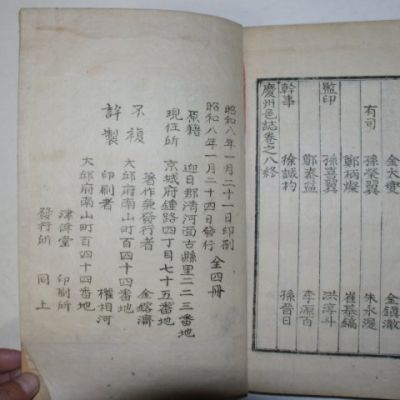 有司 金太夔 金鎭澈
孫榮翼 朱永湜
鄭柄燦 崔基鎬
監印 孫喜翼 洪淳斗
鄭泰益 李源百
幹事 徐誠杓 孫晉日
慶州邑誌卷之八終
昭和八年一月二十一日印刷
昭和八年一月二十四日發行 全四冊
原籍 迎日郡淸河面古縣里二二三番地
現住所 京城府鍾路四丁目七十五番地
著作兼發行者 金鎔濟
大邱府南山町百四十四番地
不複 許製 印刷者 權相河
大邱府南山町百四十四番地
津偉堂 印刷所
發行所 同上